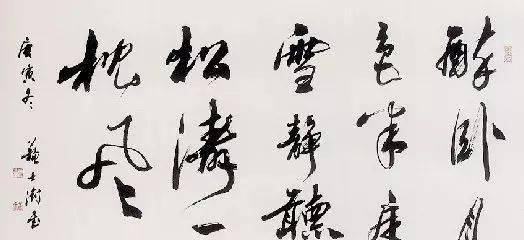 醉卧月
色半床
雪静聽
松濤一
枕风
庚寅冬 蘇士澍書